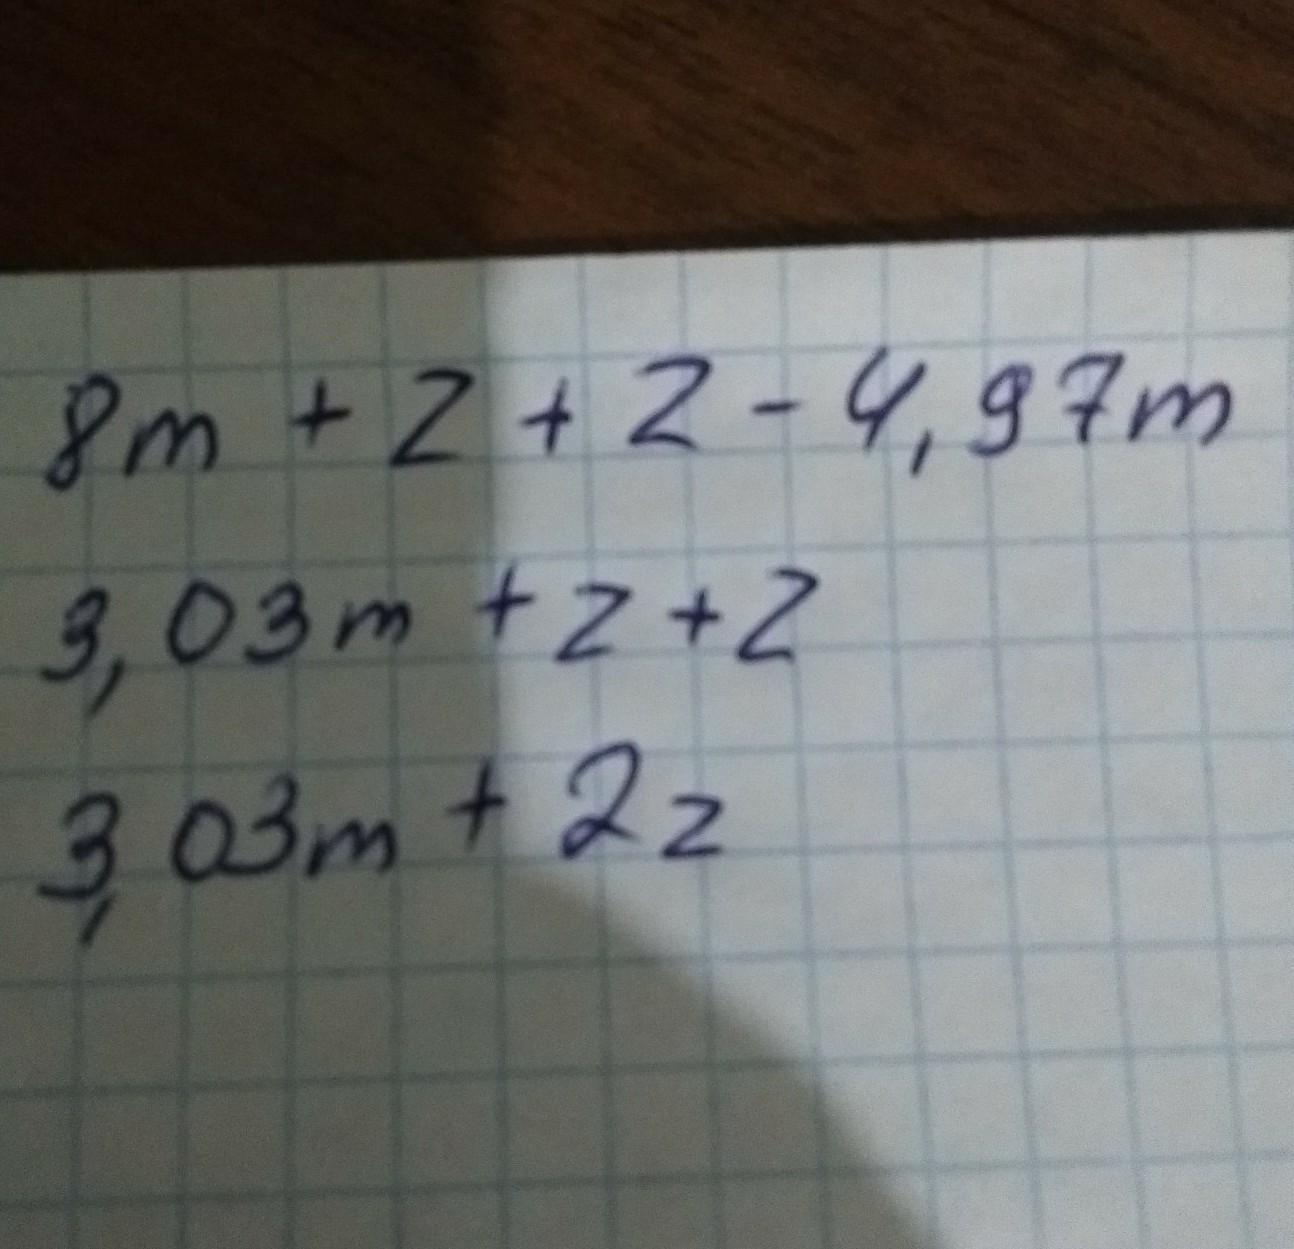 8m + z + z - 4,97m
3,03m + z + z
3,03m + 2z